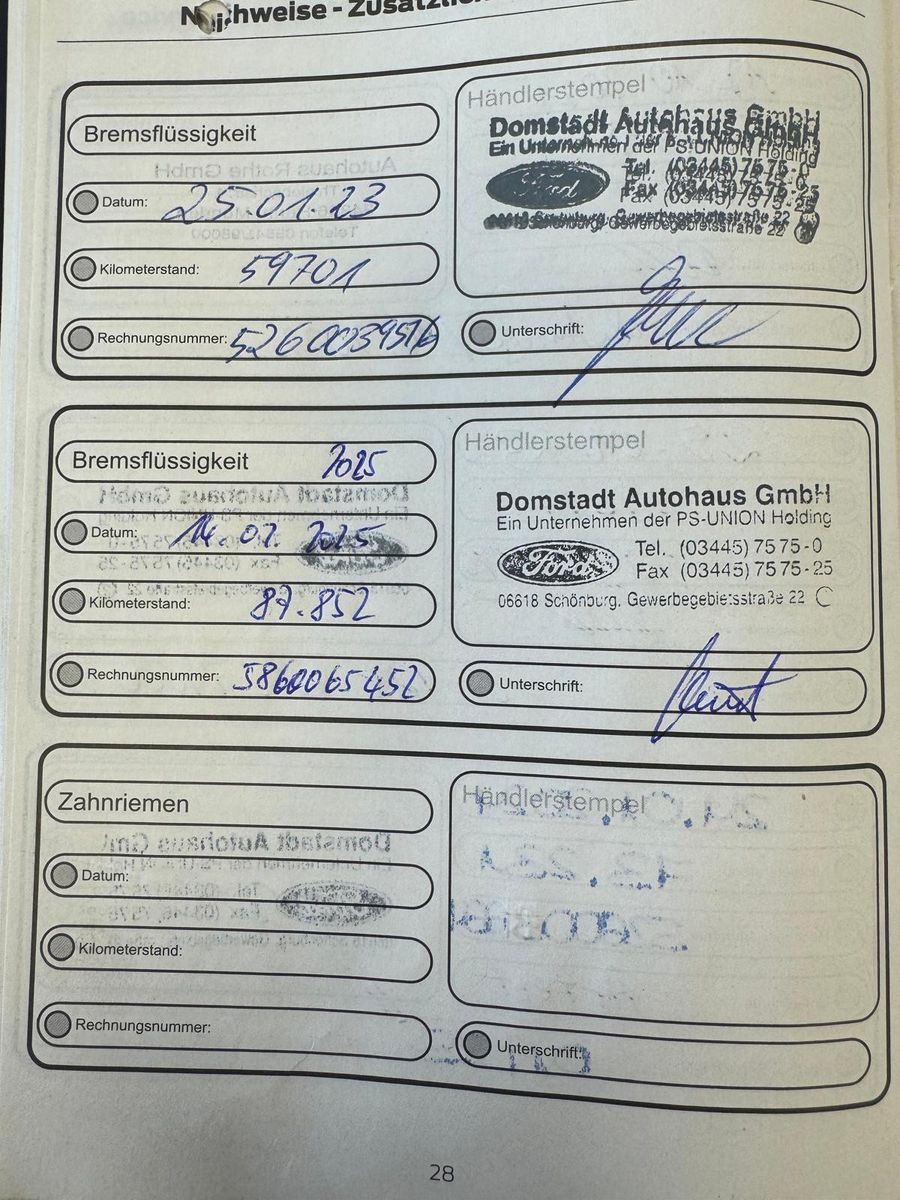 Bremsflüssigkeit
Datum: 25.01.23
Kilometerstand: 59701
Rechnungsnummer:
Händlerstempel
Domstadt Autohaus GmbH
Ein Unternehmen der PS-UNION Holding
Ford
Tel. (03445) 7575-0
Fax (03445) 7575-25
Gewerbegebietsstraße 22
Unterschrift:
Bremsflüssigkeit 2025
Datum: 2025
Kilometerstand: 87.852
Rechnungsnummer: 5860065452
Händlerstempel
Domstadt Autohaus GmbH
Ein Unternehmen der PS-UNION Holding
Ford
Tel. (03445) 7575-0
Fax (03445) 7575-25
06618 Schönburg, Gewerbegebietsstraße 22
Unterschrift:
Zahnriemen
Datum:
Kilometerstand:
Rechnungsnummer:
Händlerstempel
Unterschrift:
28